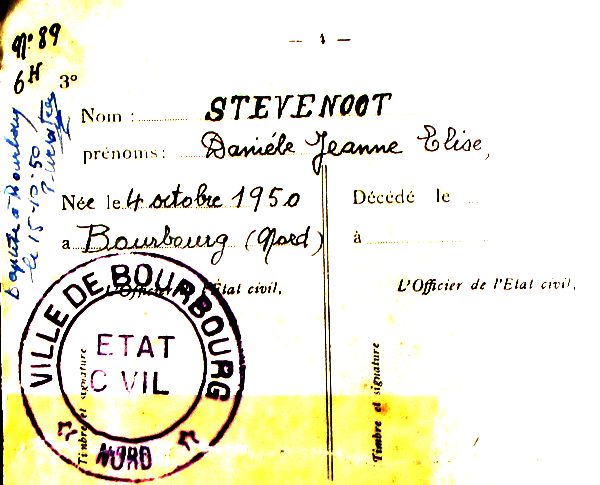 — 4 —
N° 89
6H
3°
Nom : STEVENOOT
prénoms : Danièle Jeanne Elise,
Née le 4 octobre 1950
a Bourbourg (Nord)
Décédé le
à
L'Officier de l'Etat civil,
L'Officier de l'Etat civil,
Timbre et signature
Timbre et signature
VILLE DE BOURBOURG
ETAT
CIVIL
NORD
Baptisée à Bourbourg
le 15-10-50